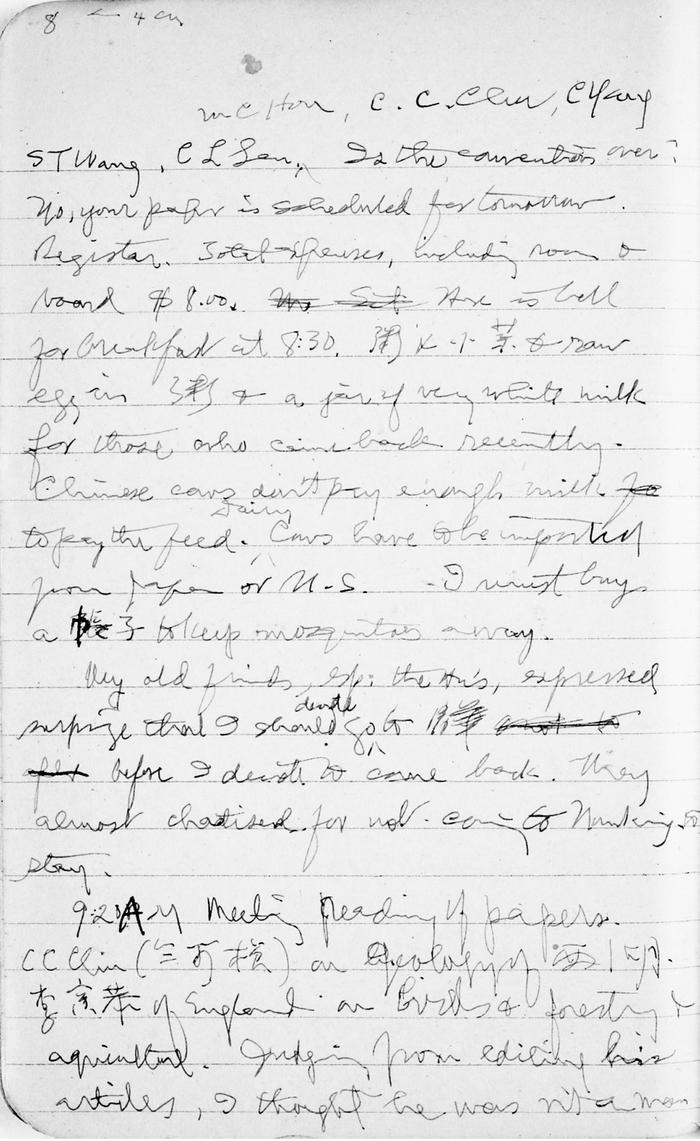 8 ← 4 cm
M C Hou, C. C. Chu, C Yang
S T Wang, C L Sen. Is the convention over?
No, your paper is scheduled for tomorrow.
Register. Total expenses, including room &
board $ 8.00. is bell
for breakfast at 8:30. 粥 & 小菜 & raw
egg in 粥 & a jar of very white milk
for those who came back recently.
Chinese cows don't pay enough milk
to pay the feed. Dairy Cows have to be imported
from Japan or U.S. - I must buy
a 帳子 to keep mosquitoes away.
My old friends, esp. the Hu's, expressed
surprize that I should decide go to
before I decide to come back. They
almost chastised for not coming to Nanking to
stay.
9:20 AM Meeting Reading of papers.
C C Chu ( ) on Geology of
李 of England on Birds & forestry &
agriculture. Judging from editing his
articles, I thought he was not a man